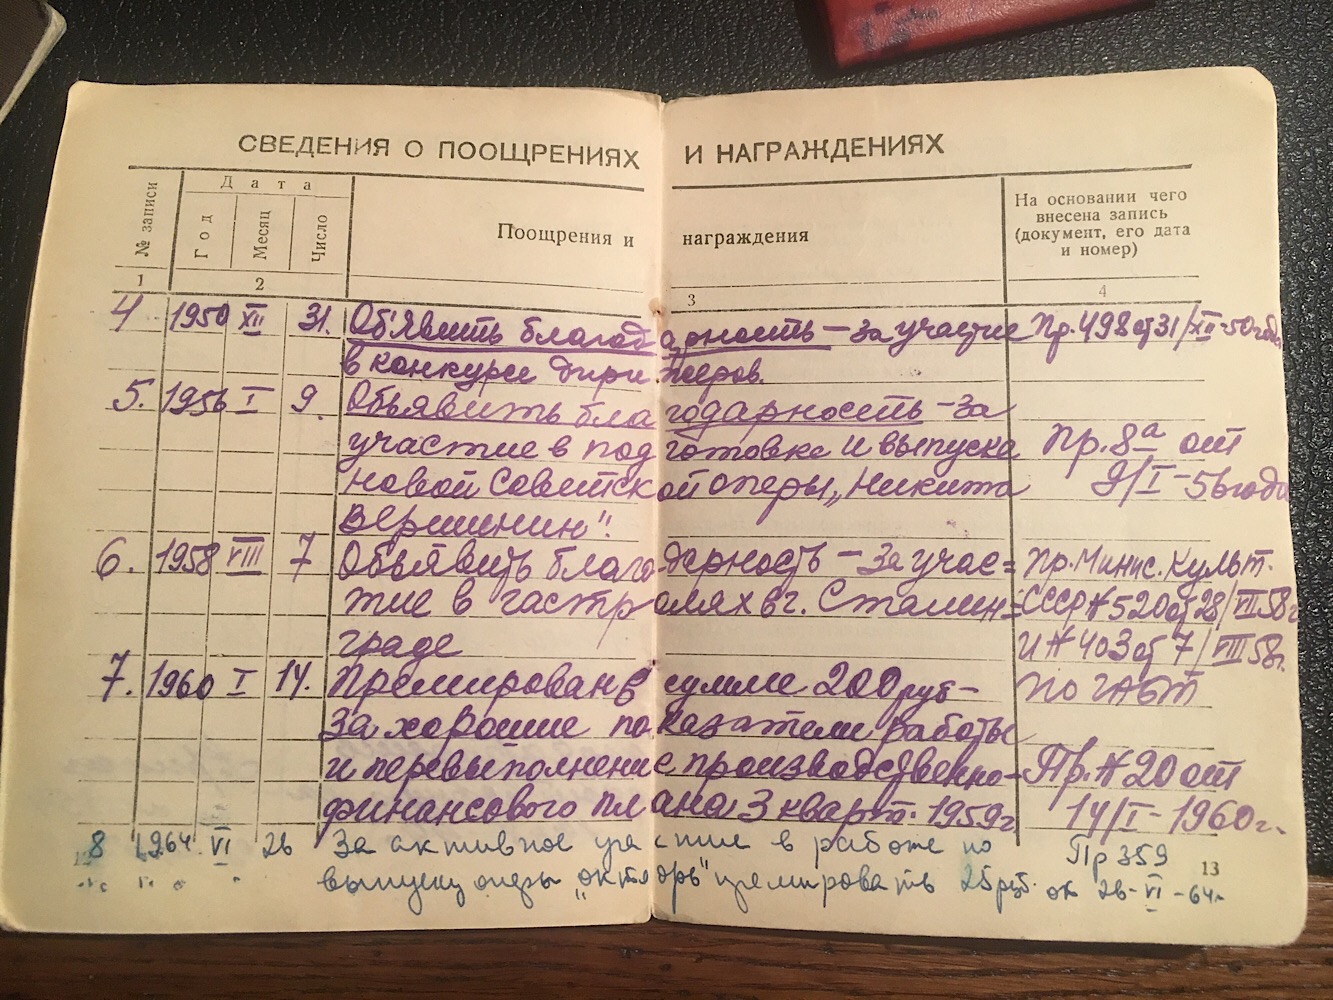 СВЕДЕНИЯ О ПООЩРЕНИЯХ И НАГРАЖДЕНИЯХ
№ записи
Дата
Год
Месяц
Число
Поощрения и награждения
На основании чего
внесена запись
(документ, его дата
и номер)
1 2 3 4
4 1950 XII 31. Об'явить благодарность – за участие Пр. 498 от 31/XII-50 года
в конкурсе дирижеров.
5. 1956 I 9. Объявить благодарность – за
участие в подготовке и выпуске Пр. 8а от
новой Советской оперы „Никита 9/I-56 года
Вершинин".
6. 1958 VIII 7 Объявить благодарность – за учас= Пр. Минис. Культ.
тие в гастролях в г. Сталин= СССР № 520 от 28/VII.58 г
граде и № 403 от 7/VIII 58г.
7. 1960 I 14. Премирован в сумме 200 руб – по ГАБТ
за хорошие показатели работы
и перевыполнение производственно- Пр. № 20 от
финансового плана 3 кварт. 1959 г 14/I-1960 г.
8 1964 VI 26 За активное участие в работе по Пр 359
выпуску оперы „октябрь" премировать 25 руб. от 26-VI-64г
13